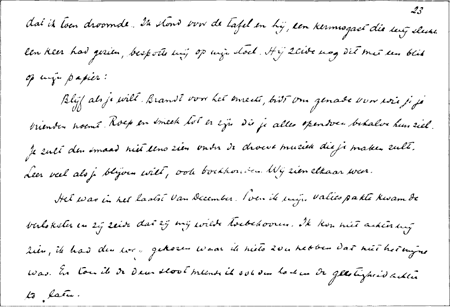 23
dat ik toen droomde. Ik stond voor de tafel en hij, een kermisgast die mij slechts
een keer had gezien, bespotte mij op mijn stoel. Hij zeide nog dit met een blik
op mijn papier:
Blijf als je wilt. Brandt voor het onrecht, bidt om genade voor wie jij je
vrienden noemt. Roep en smeek tot er zijn die je alles opendoen behalve hun ziel.
Je zult den smaad niet eens zien onder de droeve muziek die je maken zult.
Leer veel als je blijven wilt, ook boekhouden. Wij zien elkaar weer.
Het was in het laatst van December. Toen ik mijn valies pakte kwam de
verlokster en zij zeide dat zij mij wilde toebehooren. Ik kon niet achter mij
zien, ik had den gekozen waar ik niets zou hebben dat niet het mijne
was. En toen ik de deur sloot meende ik ook den de geestigheid achter
te laten.